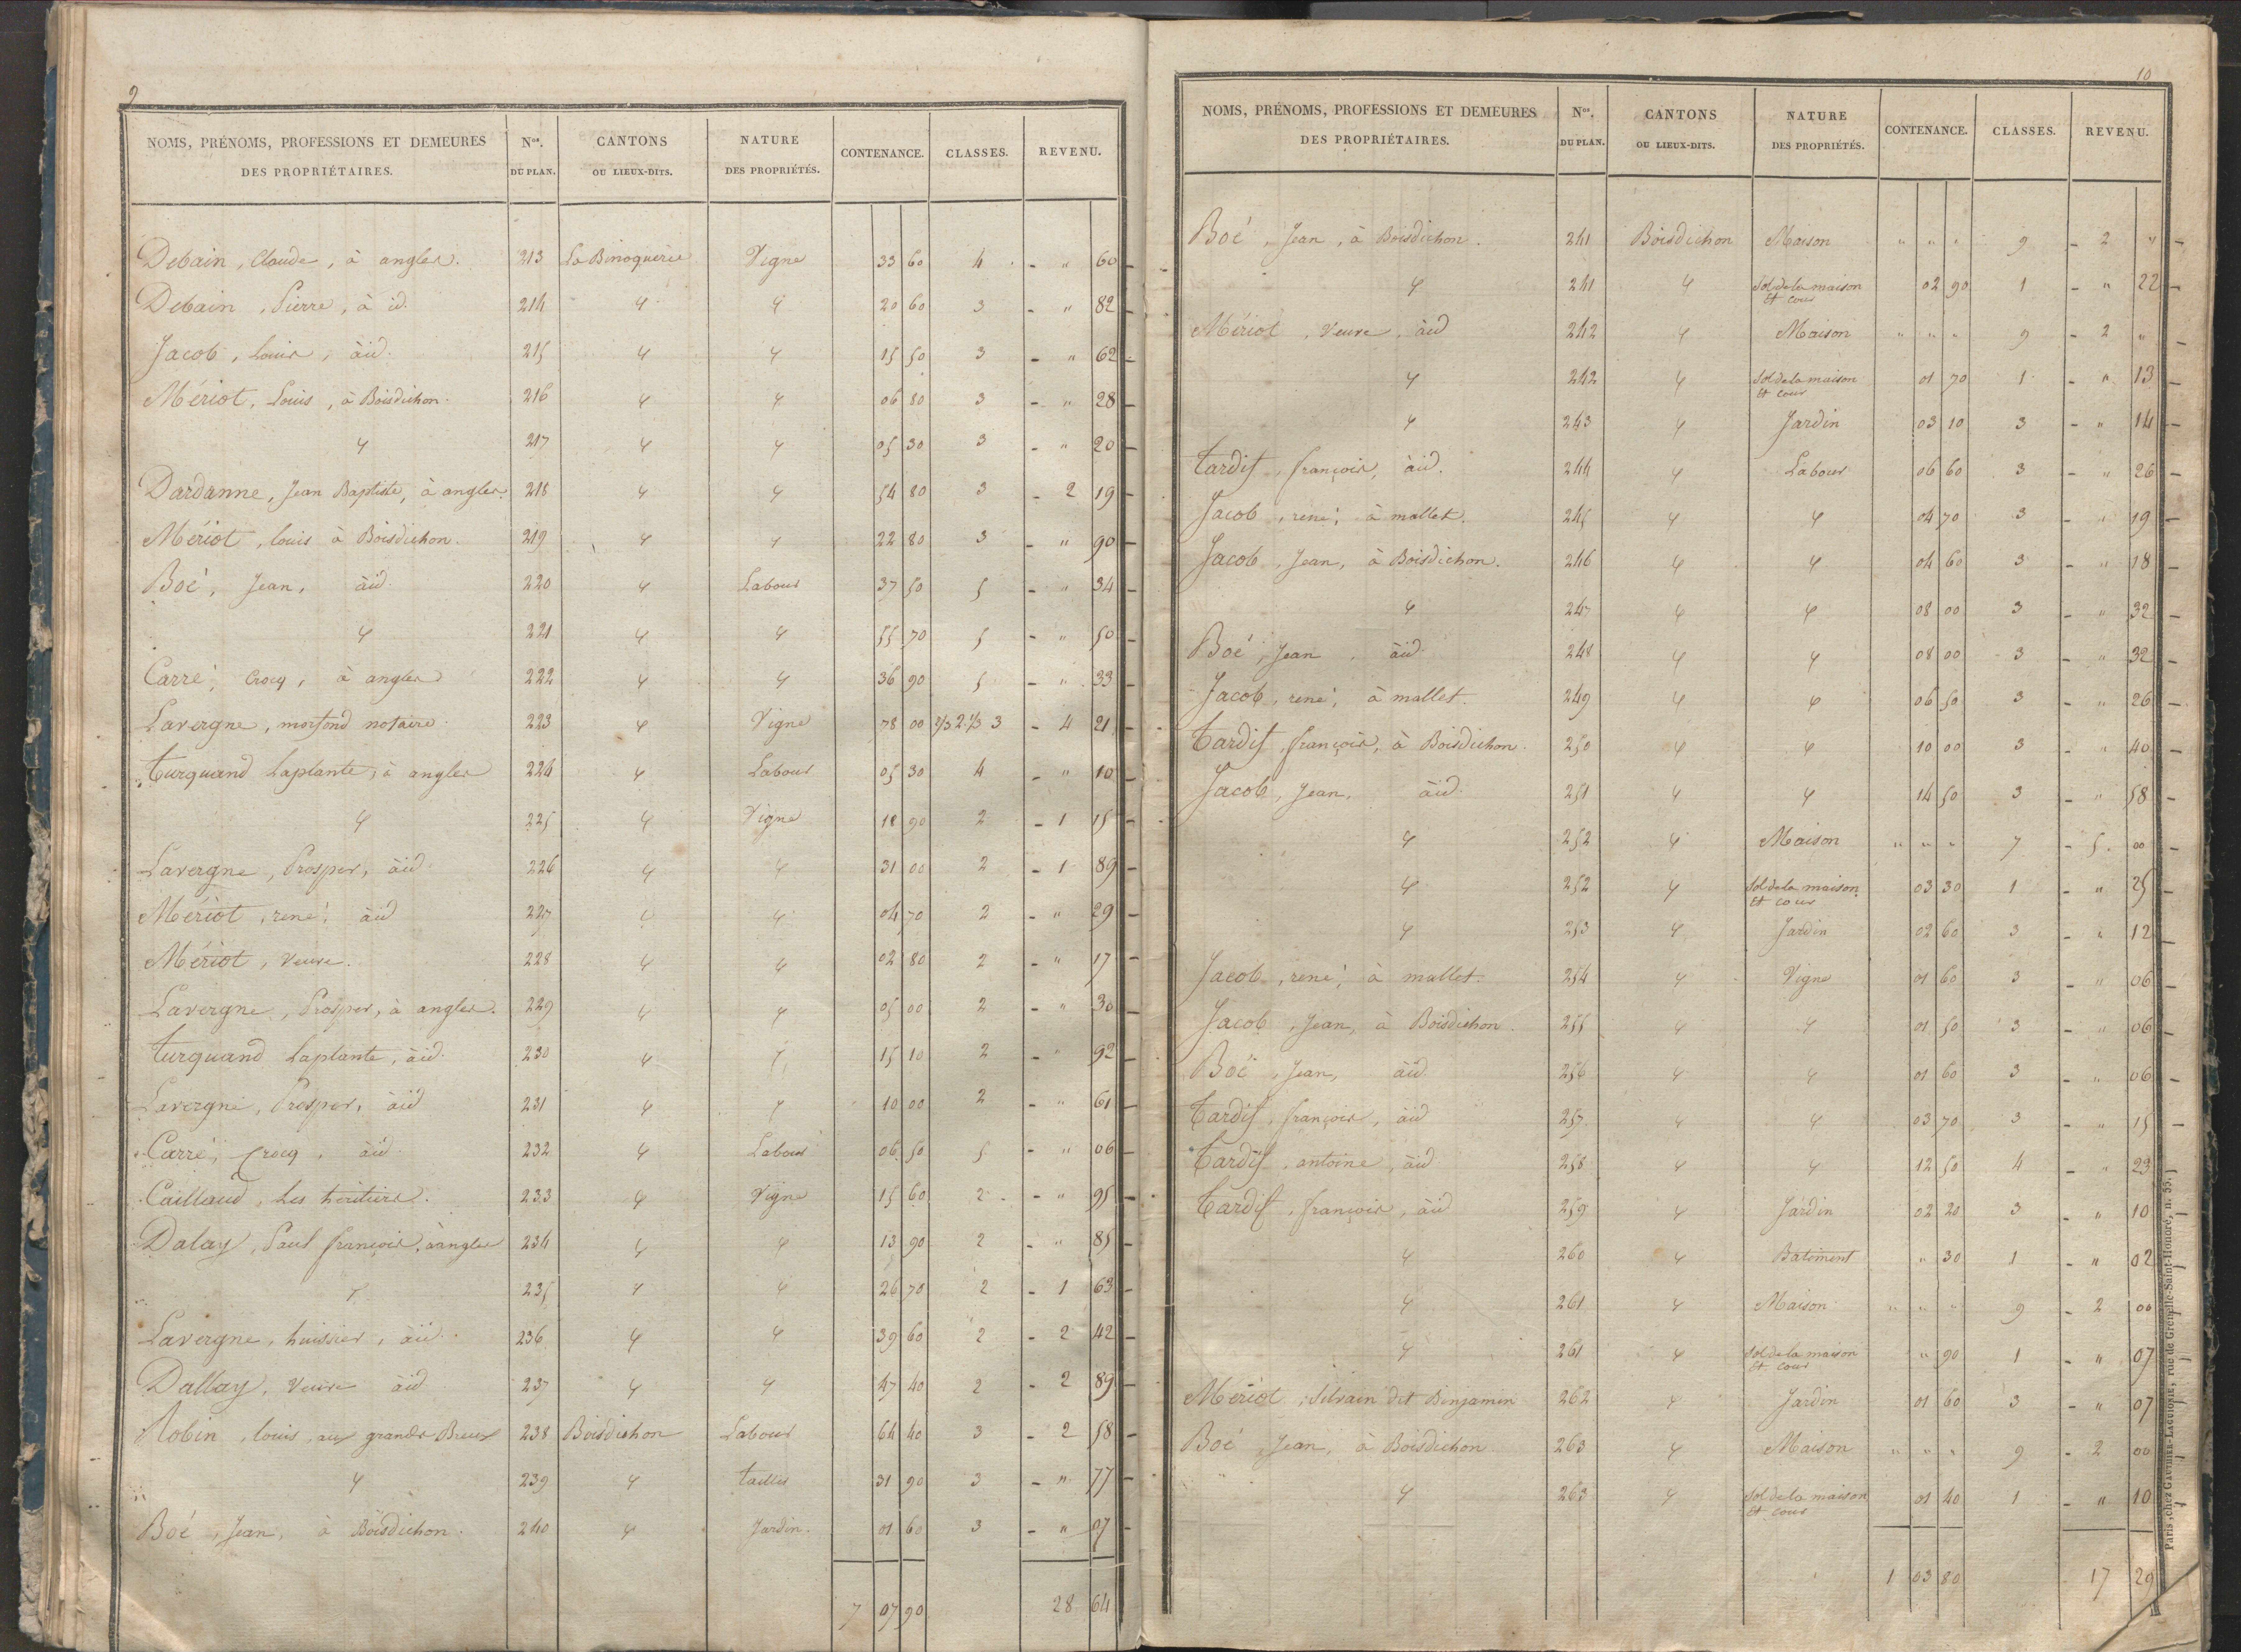 9
NOMS, PRÉNOMS, PROFESSIONS ET DEMEURES DES PROPRIÉTAIRES. Nos. DU PLAN. CANTONS OU LIEUX-DITS. NATURE DES PROPRIÉTÉS. CONTENANCE. CLASSES. REVENU.
Debain, Claude, à angles. 213 La Binoquerie Vigne 33 60 4 - " 60 -
Debain, Pierre, à id. 214 " " 20 60 3 - " 82 -
Jacob, Louis, à id. 215 " " 15 50 3 - " 62 -
Mériot, Louis, à Boisdichon. 216 " " 06 80 3 - " 28 -
" 217 " " 05 30 3 - " 20 -
Dardanne, Jean Baptiste, à angles. 218 " " 54 80 3 - 2 19 -
Mériot, louis à Boisdichon. 219 " " 22 80 3 - " 90 -
Boé, Jean, à id. 220 " Labour 37 50 5 - " 34 -
" 221 " " 55 70 5 - " 50 -
Carré, Crocq, à angles 222 " " 36 90 5 - " 33 -
Lavergne, morfond notaire 223 " Vigne 78 00 2/3 2. 1/3 3 - 4 21 -
turquand Laplante, à angles 224 " Labour 05 30 4 - " 10 -
" 225 " Vigne 18 90 2 - 1 15 -
Lavergne, Prosper, à id. 226 " " 31 00 2 - 1 89 -
Mériot, rené, à id 227 " " 04 70 2 - " 29 -
Mériot, Veuve. 228 " " 02 80 2 - " 17 -
Lavergne, Prosper, à angles. 229 " " 05 00 2 - " 30 -
turquand Laplante, à id. 230 " " 15 10 2 - " 92 -
Lavergne, Prosper, à id 231 " " 10 00 2 - " 61 -
Carré, Crocq, à id. 232 " Labour 06 50 5 - " 06 -
Caillaud, Les héritiers. 233 " Vigne 15 60 2 - " 95 -
Dalay, Paul françois, à angles 234 " " 13 90 2 - " 85 -
" 235 " " 26 70 2 - 1 63 -
Lavergne, huissier, à id. 236 " " 39 60 2 - 2 42 -
Dallay, Veuve à id 237 " " 47 40 2 - 2 89 -
Robin, louis, aux grands Breux 238 Boisdichon Labour 64 40 3 - 2 58 -
" 239 " taillis 31 90 3 - " 77 -
Boé, Jean, à Boisdichon. 240 " Jardin. 01 60 3 - " 07 -
7 07 90 28 64
10
NOMS, PRÉNOMS, PROFESSIONS ET DEMEURES DES PROPRIÉTAIRES. Nos. DU PLAN. CANTONS OU LIEUX-DITS. NATURE DES PROPRIÉTÉS. CONTENANCE. CLASSES. REVENU.
Boé, Jean, à Boisdichon. 241 Boisdichon Maison " " " 9 - 2 " -
" 241 " Sol de la maison Et cour 02 90 1 - " 22 -
Mériot, Veuve, à id 242 " Maison " " " 9 - 2 " -
" 242 " Sol de la maison Et cour 01 70 1 - " 13 -
" 243 " Jardin 03 10 3 - " 14 -
tardif, françois, à id. 244 " Labour 06 60 3 - " 26 -
Jacob, rené, à mallet. 245 " " 04 70 3 - " 19 -
Jacob, Jean, à Boisdichon. 246 " " 04 60 3 - " 18 -
" 247 " " 08 00 3 - " 32 -
Boé, Jean, à id. 248 " " 08 00 3 - " 32 -
Jacob, rené, à mallet. 249 " " 06 50 3 - " 26 -
tardif, françois, à Boisdichon. 250 " " 10 00 3 - " 40 -
Jacob, Jean, à id. 251 " " 14 50 3 - " 58 -
" 252 " Maison " " " 7 - 5. 00 -
" 252 " Sol de la maison Et cour 03 30 1 - " 25 -
" 253 " Jardin 02 60 3 - " 12 -
Jacob, rené, à mallet. 254 " Vigne 01 60 3 - " 06 -
Jacob, Jean, à Boisdichon. 255 " " 01 50 3 - " 06 -
Boé, Jean, à id 256 " " 01 60 3 - " 06 -
tardif, françois, à id 257 " " 03 70 3 - " 15 -
tardif, antoine, à id 258 " " 12 50 4 - " 23 -
tardif, françois, à id 259 " Jardin 02 20 3 - " 10 -
" 260 " Batiment " 30 1 - " 02 -
" 261 " Maison " " " 9 - 2 00 -
" 261 " Sol de la maison Et cour " 90 1 - " 07 -
Mériot, Silvain dit Benjamin 262 " Jardin 01 60 3 - " 07 -
Boé, Jean, à Boisdichon 263 " Maison " " " 9 - 2 00 -
" 263 " Sol de la maison Et cour 01 40 1 - " 10 -
1 03 80 17 29
Paris, chez GAUTHIER-LAGUIONIE, rue de Grenelle-Saint-Honoré, n. 55.